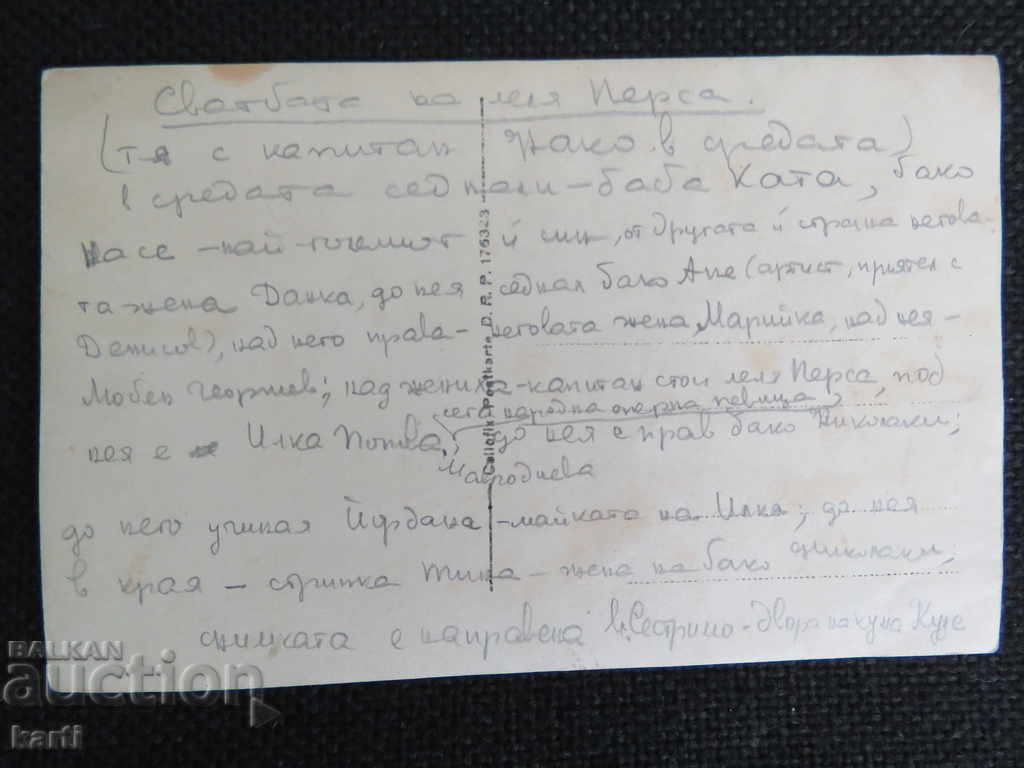 Сватбата на леля Перса.
(тя с капитан Цако в средата)
в средата седнали – баба Ката, бако
се – най-големият ѝ син, от другата ѝ страна негова-
та жена Данка, до нея седнал бако Апе (артист, приятел с
Денисов), над него права – неговата жена Марийка, над нея –
Любен Георгиев; над жениха – капитан стои леля Перса, под
сега народна оперна певица,
нея е Илка Попова, до нея с прав бако Николаки;
до него учиная Йордана – майката на Илка; до нея
в края – стринка Тина – жена на бако Николаки;
снимката е направена в с. Сестримо – двора на Куне
Cellofix-Postkarte D. R. P. 176323
BALKAN
auction
karti